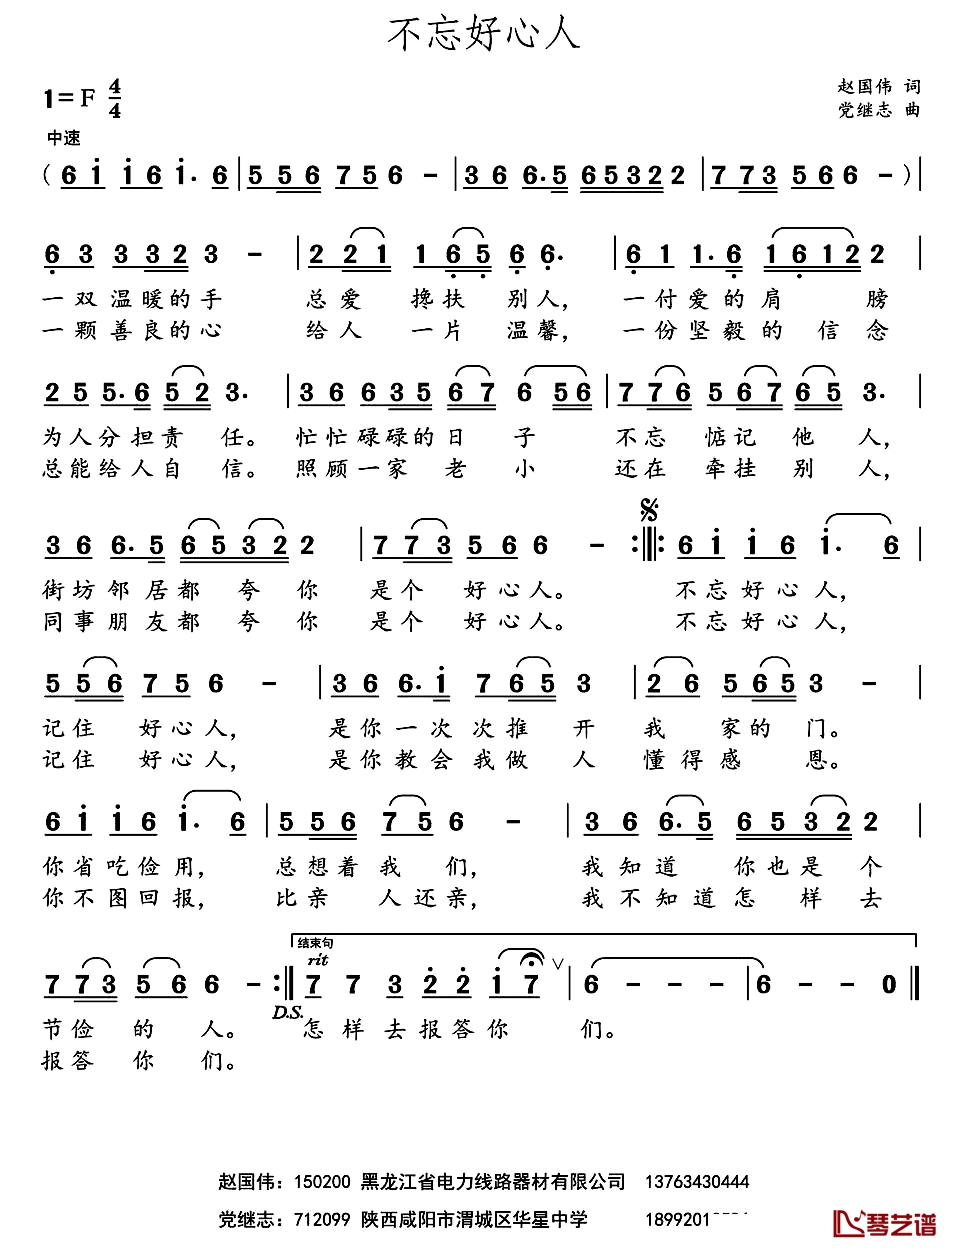 不忘好心人
1=F 4/4
赵国伟 词
党继志 曲
中速
( 6 i i 6 i. 6 | 5 5 6 7 5 6 - | 3 6 6. 5 6 5 3 2 2 2 | 7 7 3 5 6 6 - ) |
6 3 3 3 2 3 - | 2 2 1 1 6 5 6 6. | 6 1 1. 6 1 6 1 2 2 |
一双温暖的手 总爱 搀扶 别人, 一付爱的肩 膀
一颗善良的心 给人 一片 温馨, 一份坚毅的 信念
2 5 5. 6 5 2 3. | 3 6 6 3 5 6 7 6 5 6 | 7 7 6 5 6 7 6 5 3. |
为人分担责 任。 忙忙碌碌的日 子 不忘 惦记 他 人,
总能给人自 信。 照顾一家 老 小 还在 牵挂 别 人,
3 6 6. 5 6 5 3 2 2 | 7 7 3 5 6 6 - :||: 6 i i 6 i. 6 |
街坊邻居都 夸 你 是个 好心人。 不忘好心人,
同事朋友都 夸 你 是个 好心人。 不忘好心人,
5 5 6 7 5 6 - | 3 6 6. i 7 6 5 3 | 2 6 5 6 5 3 - |
记住 好心人, 是你一次次推 开 我 家的 门。
记住 好心人, 是你教会我做 人 懂得感 恩。
6 i i 6 i. 6 | 5 5 6 7 5 6 - | 3 6 6. 5 6 5 3 2 2 |
你省吃俭用, 总想着我 们, 我知道 你也是个
你不图回报, 比亲 人还亲, 我不知道怎 样去
结束句
rit
7 7 3 5 6 6 - :|| 7 7 3 2 2 i 7 ∨ | 6 - - - | 6 - - 0 ||
D.S.
节俭 的 人。 怎样去报答你 们。
报答 你 们。
赵国伟：150200 黑龙江省电力线路器材有限公司 13763430444
党继志：712099 陕西咸阳市渭城区华星中学 1899201
琴艺谱